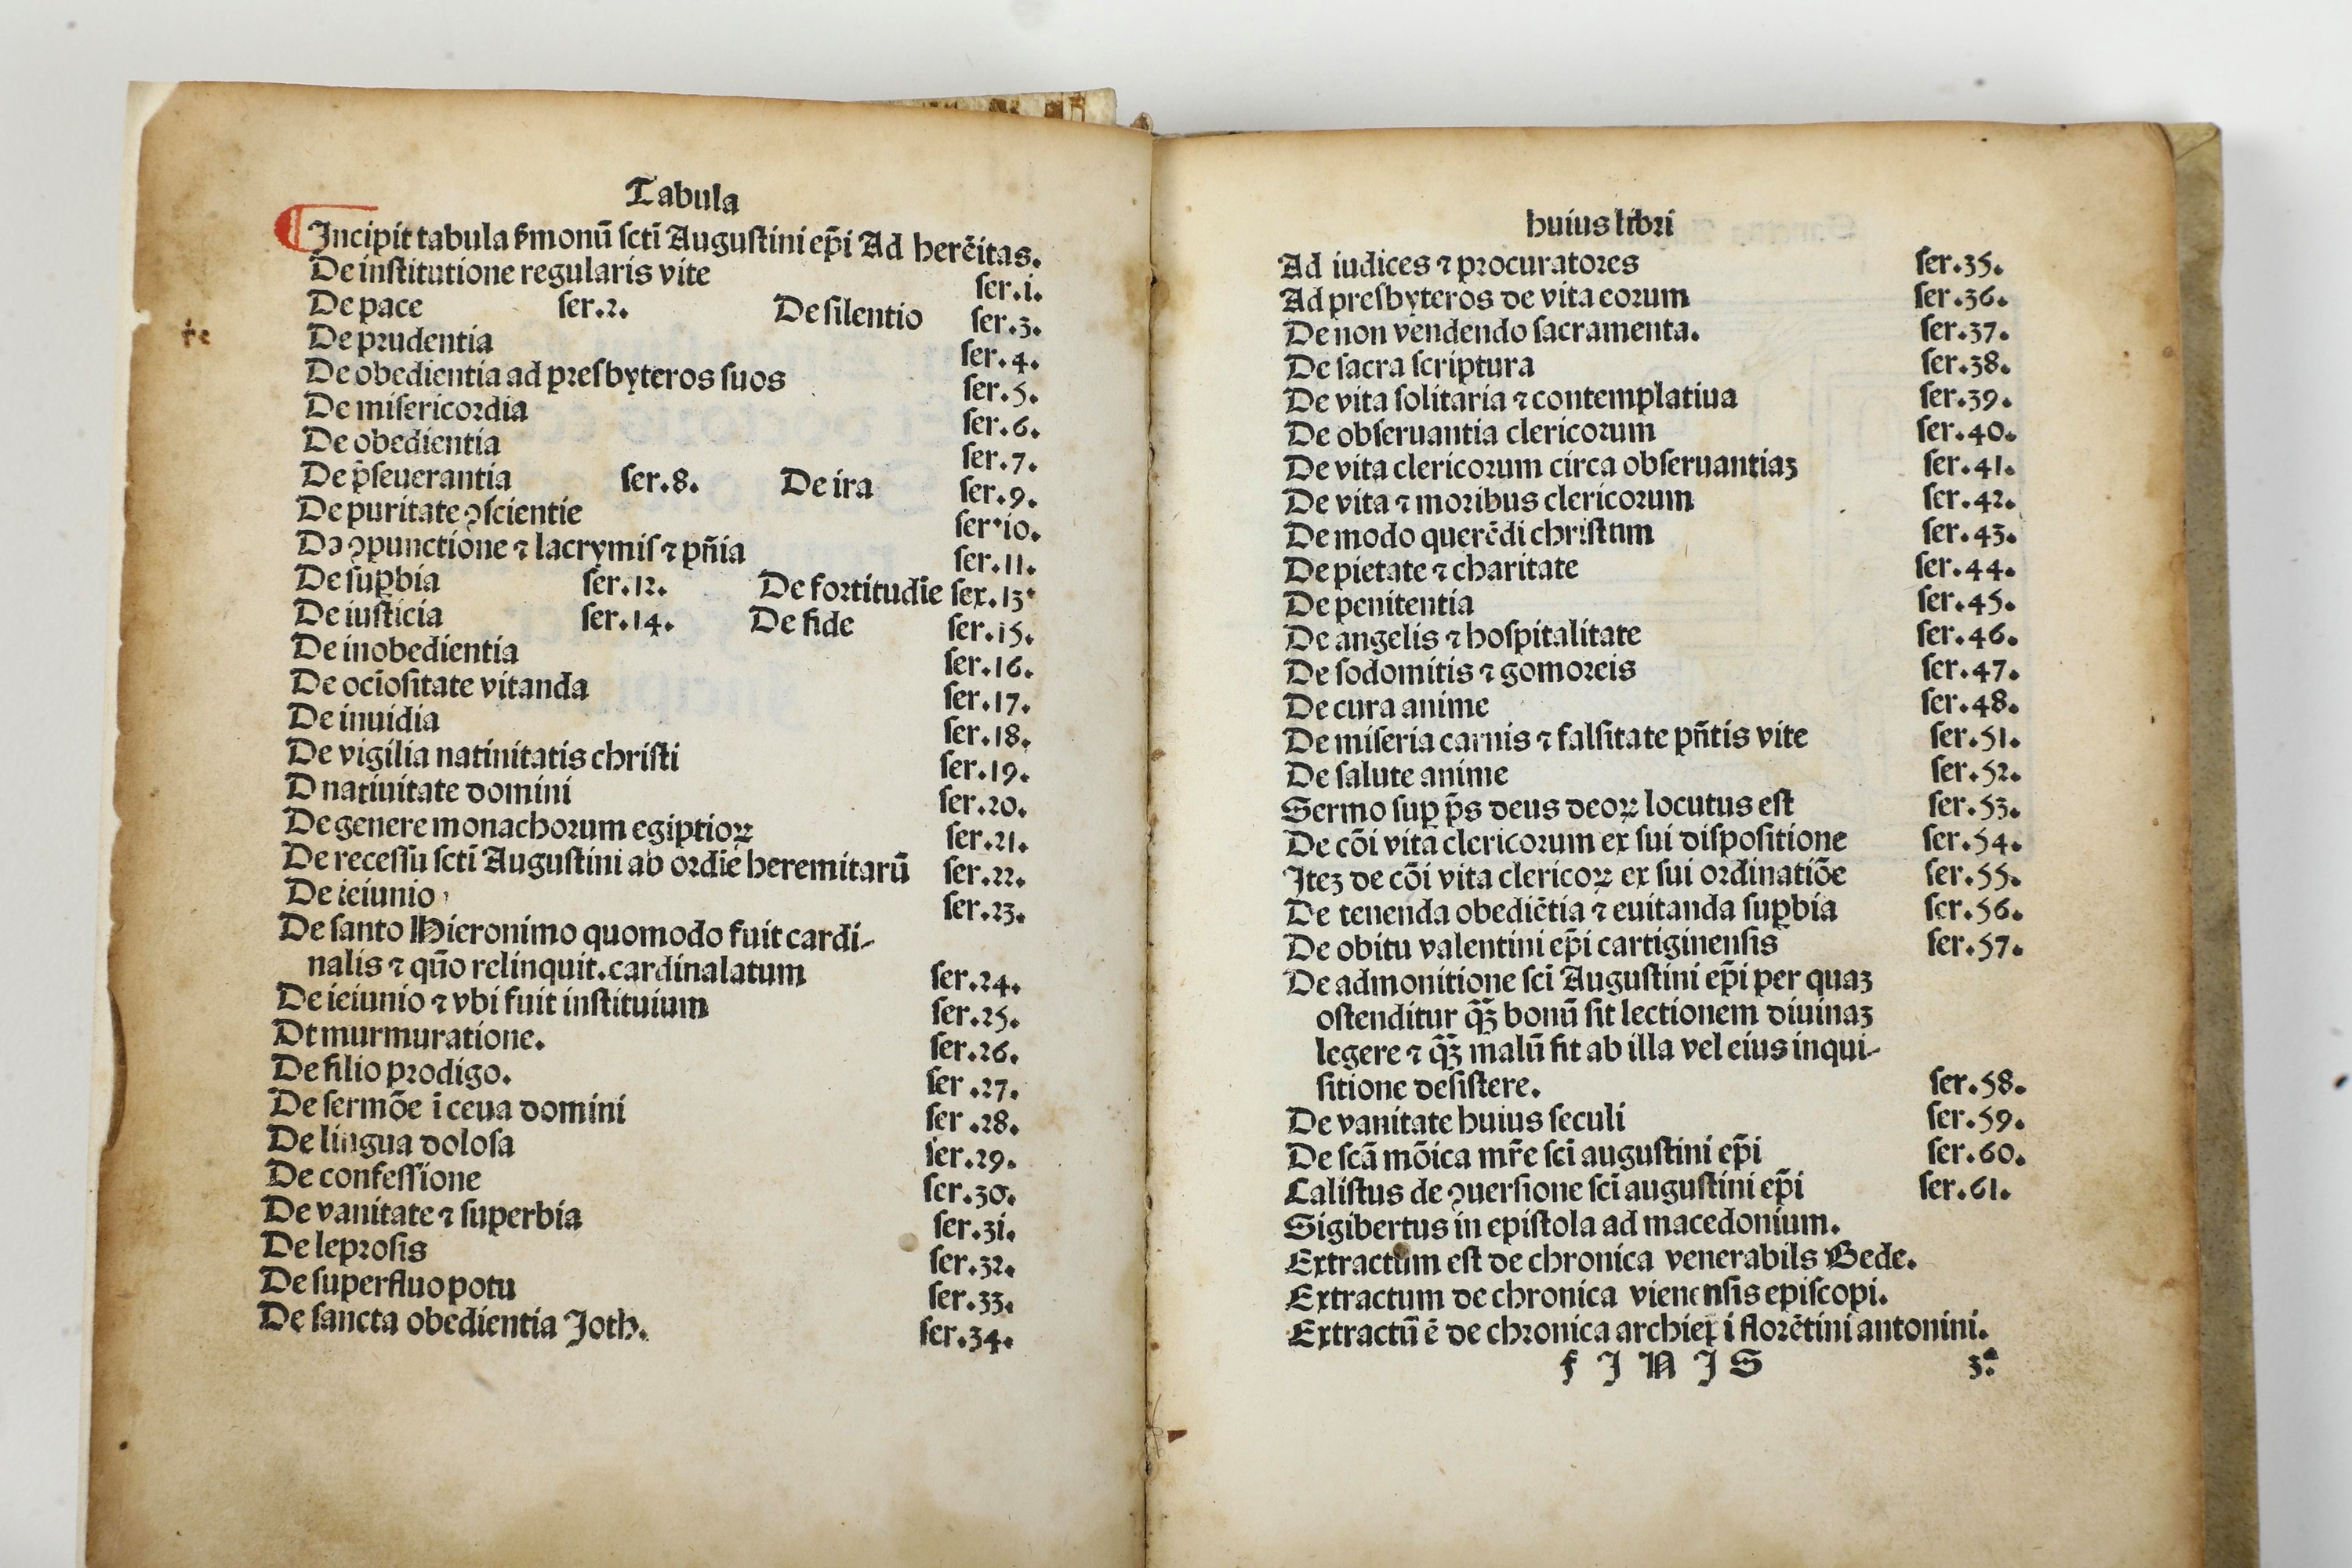 Tabula
Incipit tabula ẜmonū ſcti Auguſtini ep̄i Ad herēitas.
De inſtitutione regularis vite ſer.i.
De pace ſer.2. De ſilentio ſer.3.
De prudentia ſer.4.
De obedientia ad preſbyteros ſuos ſer.5.
De miſericordia ſer.6.
De obedientia ſer.7.
De p̄ſeuerantia ſer.8. De ira ſer.9.
De puritate ꝯſcientie ſer.io.
De ꝯpunctione ⁊ lacrymiſ ⁊ pn̄ia ſer.11.
De ſuꝑbia ſer.12. De fortitudīe ſer.13.
De iuſticia ſer.14. De fide ſer.15.
De inobedientia ſer.16.
De ocioſitate vitanda ſer.17.
De inuidia ſer.18.
De vigilia natinitatis chriſti ſer.19.
D natiuitate domini ſer.20.
De genere monachorum egiptioꝝ ſer.21.
De receſſu ſcti Auguſtini ab ordīe heremitarū ſer.22.
De ieiunio ſer.23.
De ſanto Hieronimo quomodo fuit cardi-
nalis ⁊ qūo relinquit.cardinalatum ſer.24.
De ieiunio ⁊ vbi fuit inſtituium ſer.25.
Dt murmuratione. ſer.26.
De filio prodigo. ſer .27.
De ſermōe ī ceua domini ſer .28.
De lingua doloſa ſer.29.
De confeſſione ſer.30.
De vanitate ⁊ ſuperbia ſer.31.
De leproſis ſer.32.
De ſuperfluo potu ſer.33.
De ſancta obedientia Joth. ſer.34.
huius libri
Ad iudices ⁊ procuratores ſer.35.
Ad preſbyteros de vita eorum ſer.36.
De non vendendo ſacramenta. ſer.37.
De ſacra ſcriptura ſer.38.
De vita ſolitaria ⁊ contemplatiua ſer.39.
De obſeruantia clericorum ſer.40.
De vita clericorum circa obſeruantiaꝫ ſer.41.
De vita ⁊ moribus clericorum ſer.42.
De modo querēdi chriſtum ſer.43.
De pietate ⁊ charitate ſer.44.
De penitentia ſer.45.
De angelis ⁊ hoſpitalitate ſer.46.
De ſodomitis ⁊ gomoreis ſer.47.
De cura anime ſer.48.
De miſeria carnis ⁊ falſitate pn̄tis vite ſer.51.
De ſalute anime ſer.52.
Sermo ſuꝑ p̄s deus deoꝝ locutus eſt ſer.53.
De cōi vita clericorum ex ſui diſpoſitione ſer.54.
Iteꝫ de cōi vita clericoꝝ ex ſui ordinatiōe ſer.55.
De tenenda obediētia ⁊ euitanda ſuꝑbia ſer.56.
De obitu valentini ep̄i cartiginenſis ſer.57.
De admonitione ſci Auguſtini ep̄i per quaꝫ
oſtenditur q̄ꝫ bonū ſit lectionem diuinaꝫ
legere ⁊ q̄ꝫ malū ſit ab illa vel eius inqui-
ſitione deſiſtere. ſer.58.
De vanitate huius ſeculi ſer.59.
De ſcā mōica mr̄e ſci auguſtini ep̄i ſer.60.
Caliſtus de ꝯuerſione ſci auguſtini ep̄i ſer.61.
Sigibertus in epiſtola ad macedonium.
Extractum eſt de chronica venerabils Bede.
Extractum de chronica vienenſis epiſcopi.
Extractū ē de chronica archiep̄i florētini antonini.
F I N I S 3.